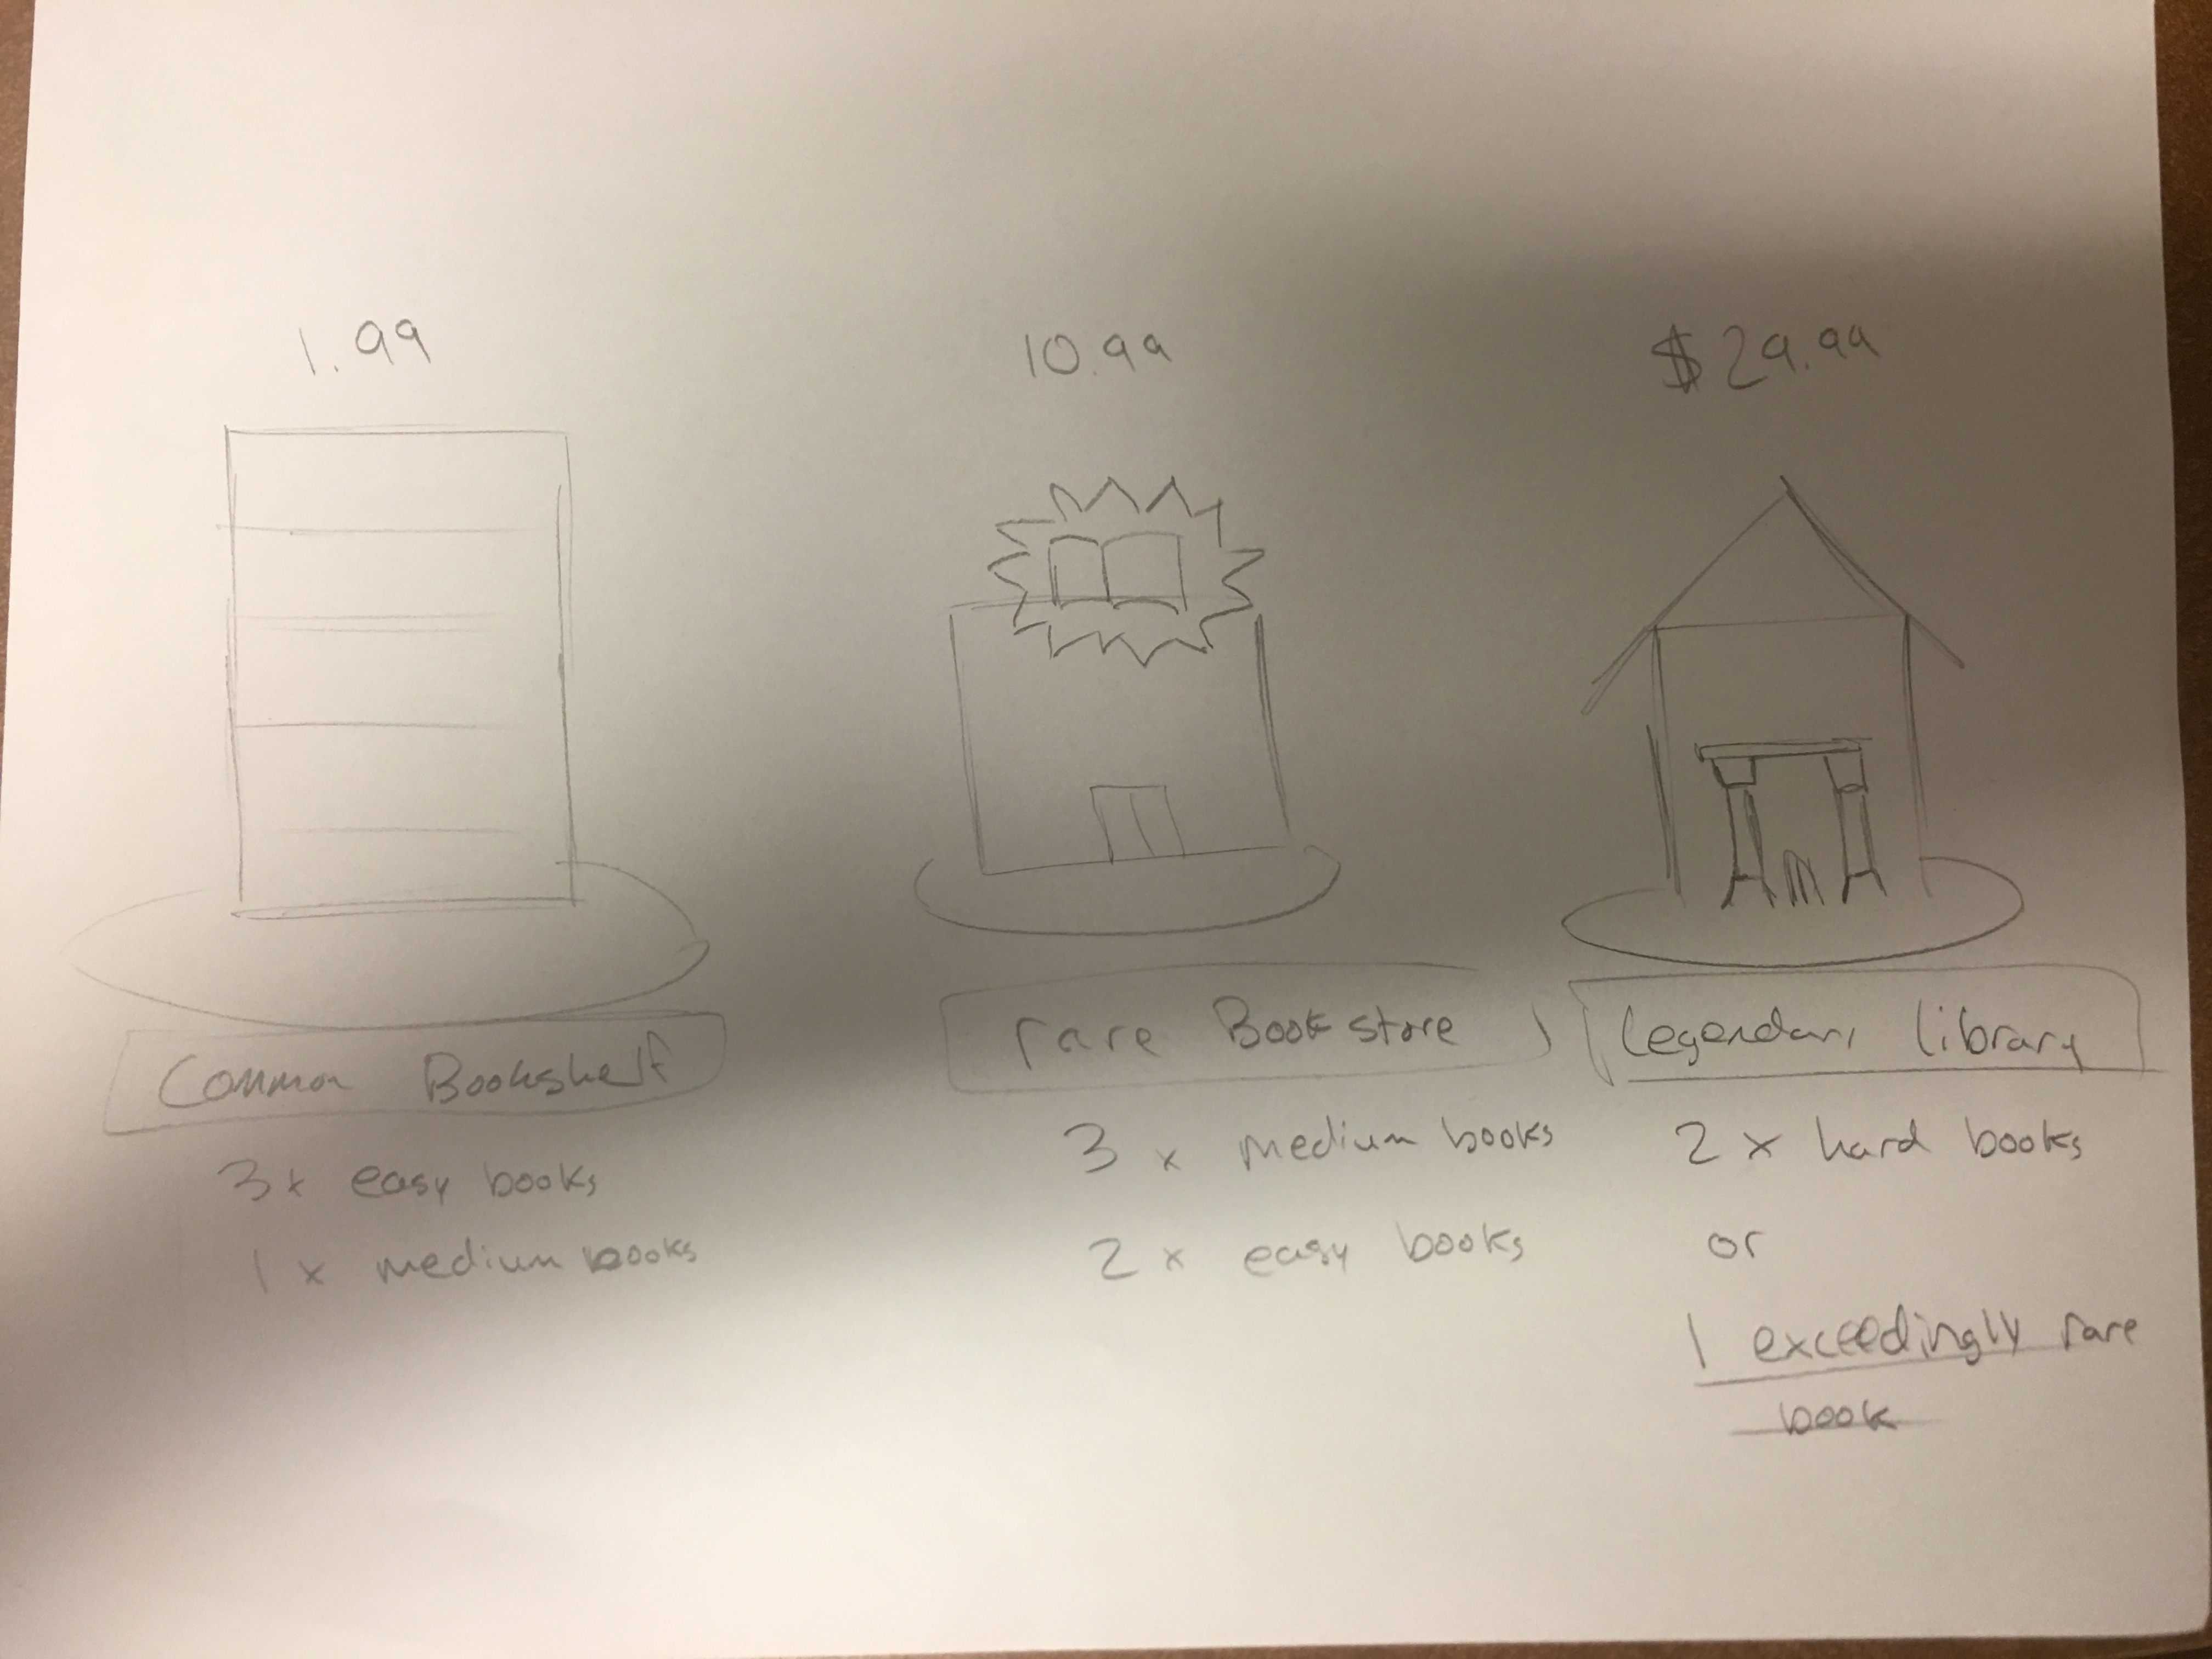 1.99
Common Bookshelf
3x easy books
1 x medium books
10.99
rare Bookstore
3 x medium books
2 x easy books
$29.99
legendary library
2 x hard books
or
1 exceedingly rare
book